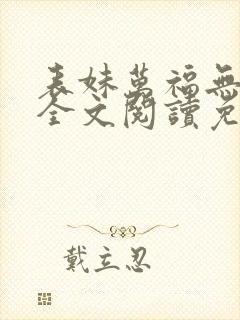 表妹萬福無
全文閱讀免
戴立忍